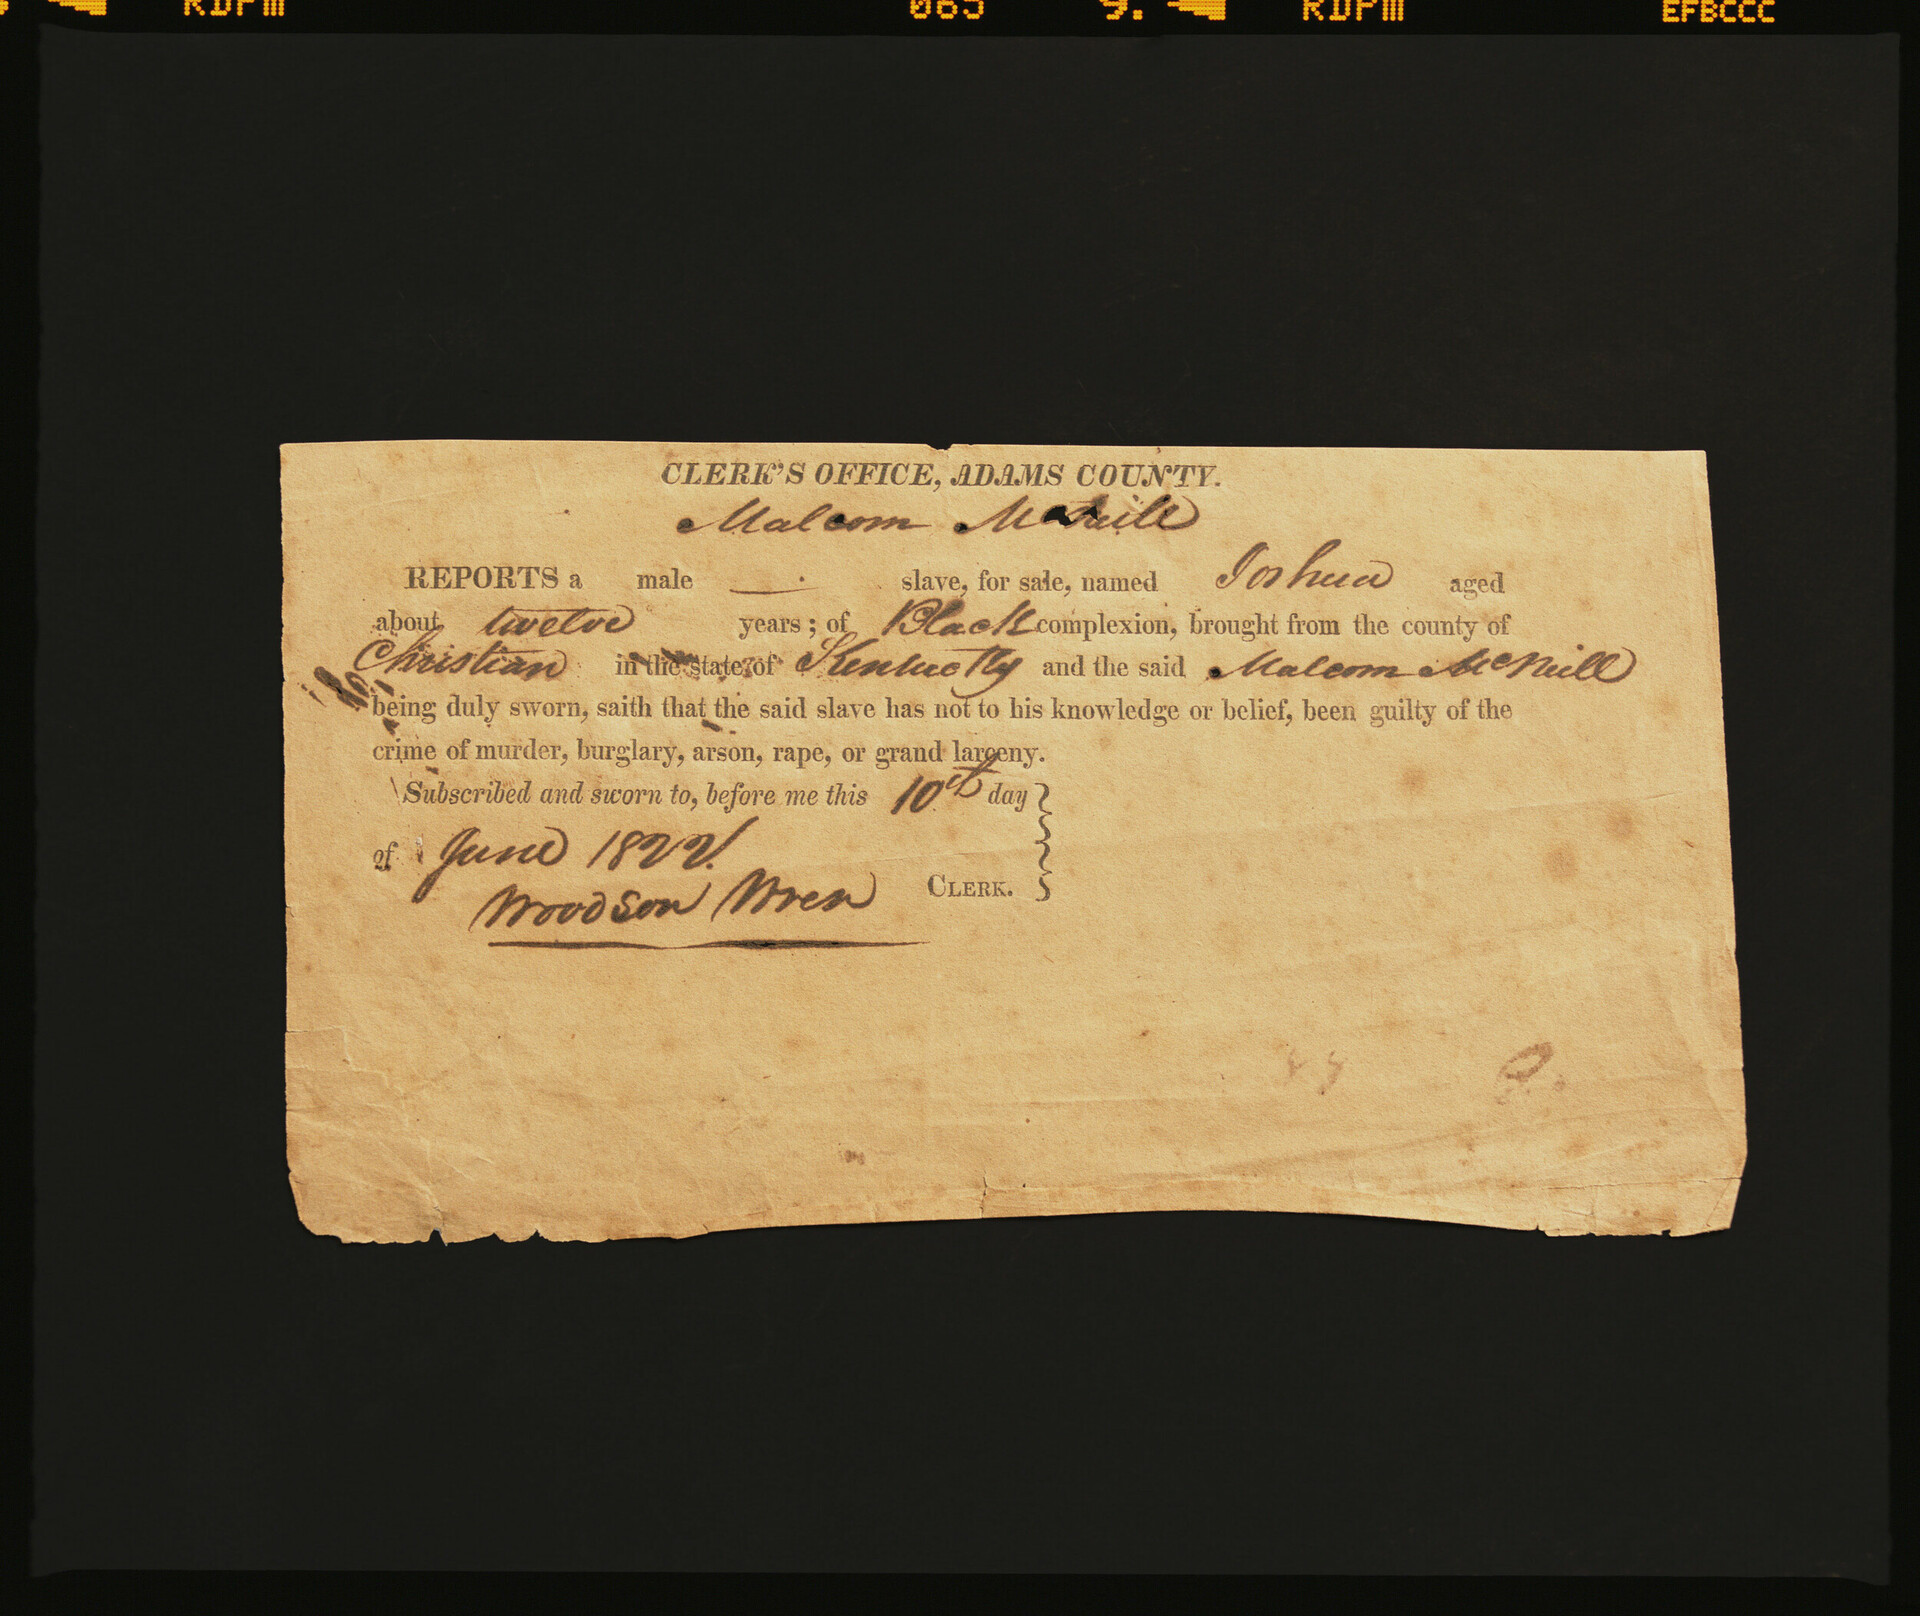 RDPM 065 9. RDPM EFBCCC
CLERK'S OFFICE, ADAMS COUNTY.
Malcom McNeill
REPORTS a male slave, for sale, named Joshua aged
about twelve years; of Black complexion, brought from the county of
Christian in the state of Kentucky and the said Malcom McNeill
being duly sworn, saith that the said slave has not to his knowledge or belief, been guilty of the
crime of murder, burglary, arson, rape, or grand larceny.
Subscribed and sworn to, before me this 10th day
of June 1822.
Woodson Wren CLERK.